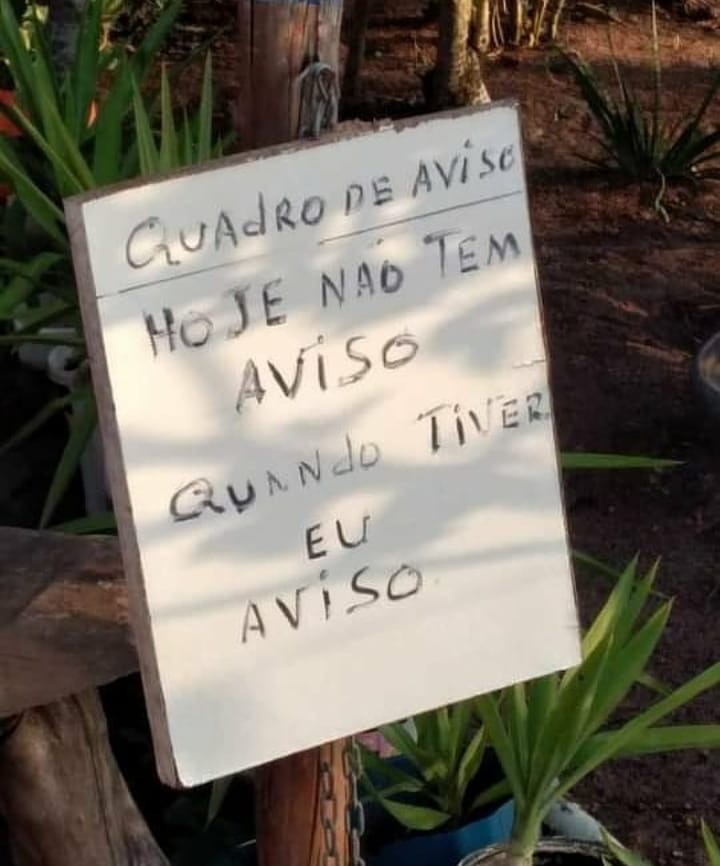 QUAdRO DE AViSO
HOJE NÃO TEM
AViSO
QUANdO TiVER
EU
AViSO